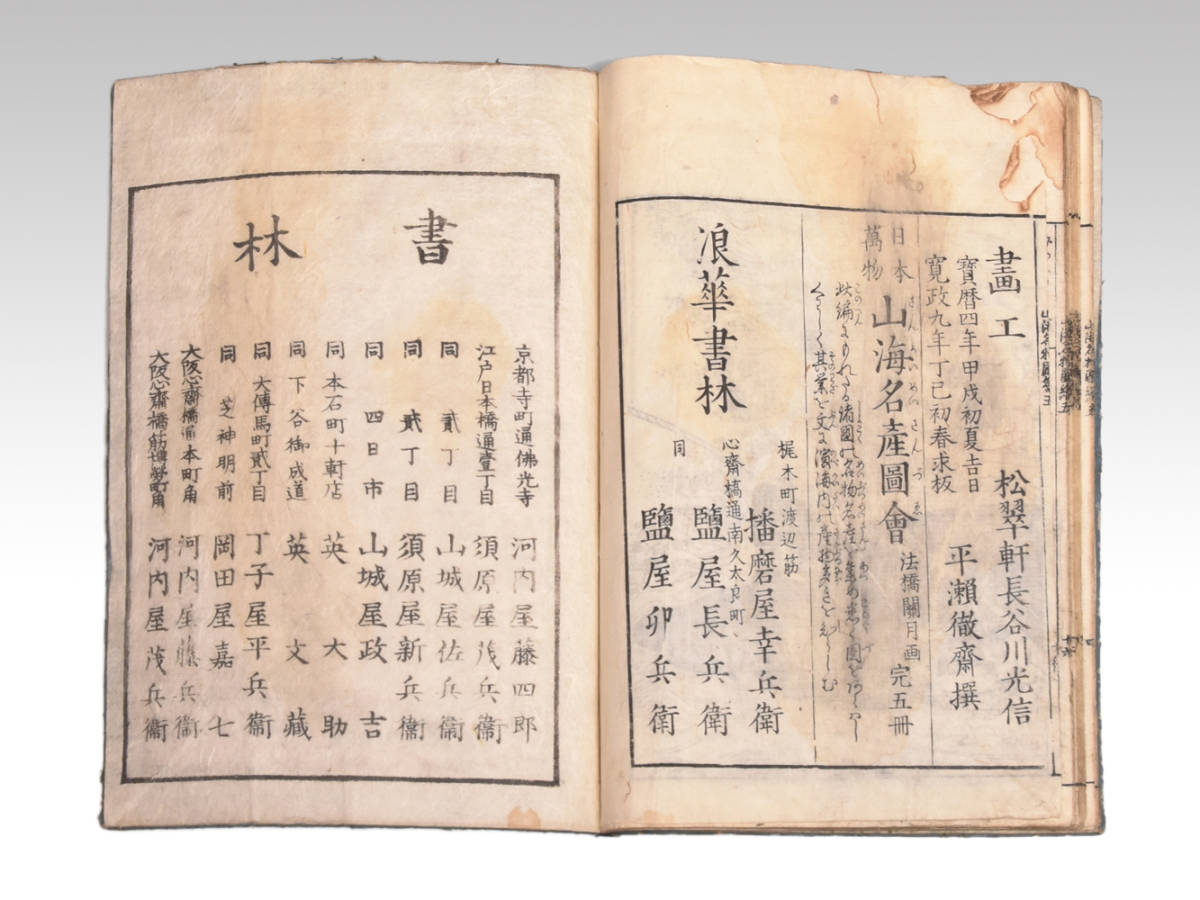 畫工　松翠軒長谷川光信
寶暦四年甲戌初夏吉日
寛政九年丁巳初春求板
平瀬徹齋撰
日本
萬物
山海名産圖會
さんかいめいさんづゑ
法橋關月画
完五冊
浪華書林
梶木町渡辺筋
播磨屋幸兵衛
心齋橋通南久太良町
鹽屋長兵衛
同
鹽屋卯兵衛
書林
京都寺町通佛光寺　河内屋藤四郎
江戸日本橋通壹丁目　須原屋茂兵衞
同　貳丁目　山城屋佐兵衞
同　貳丁目　須原屋新兵衞
同　四日市　山城屋政吉
同　本石町十軒店　英大助
同　下谷御成道　英文藏
同　大傳馬町貳丁目　丁子屋平兵衞
同　芝神明前　岡田屋嘉七
大阪心齋橋通本町角　河内屋藤兵衞
大阪心齋橋筋博勞町角　河内屋茂兵衞